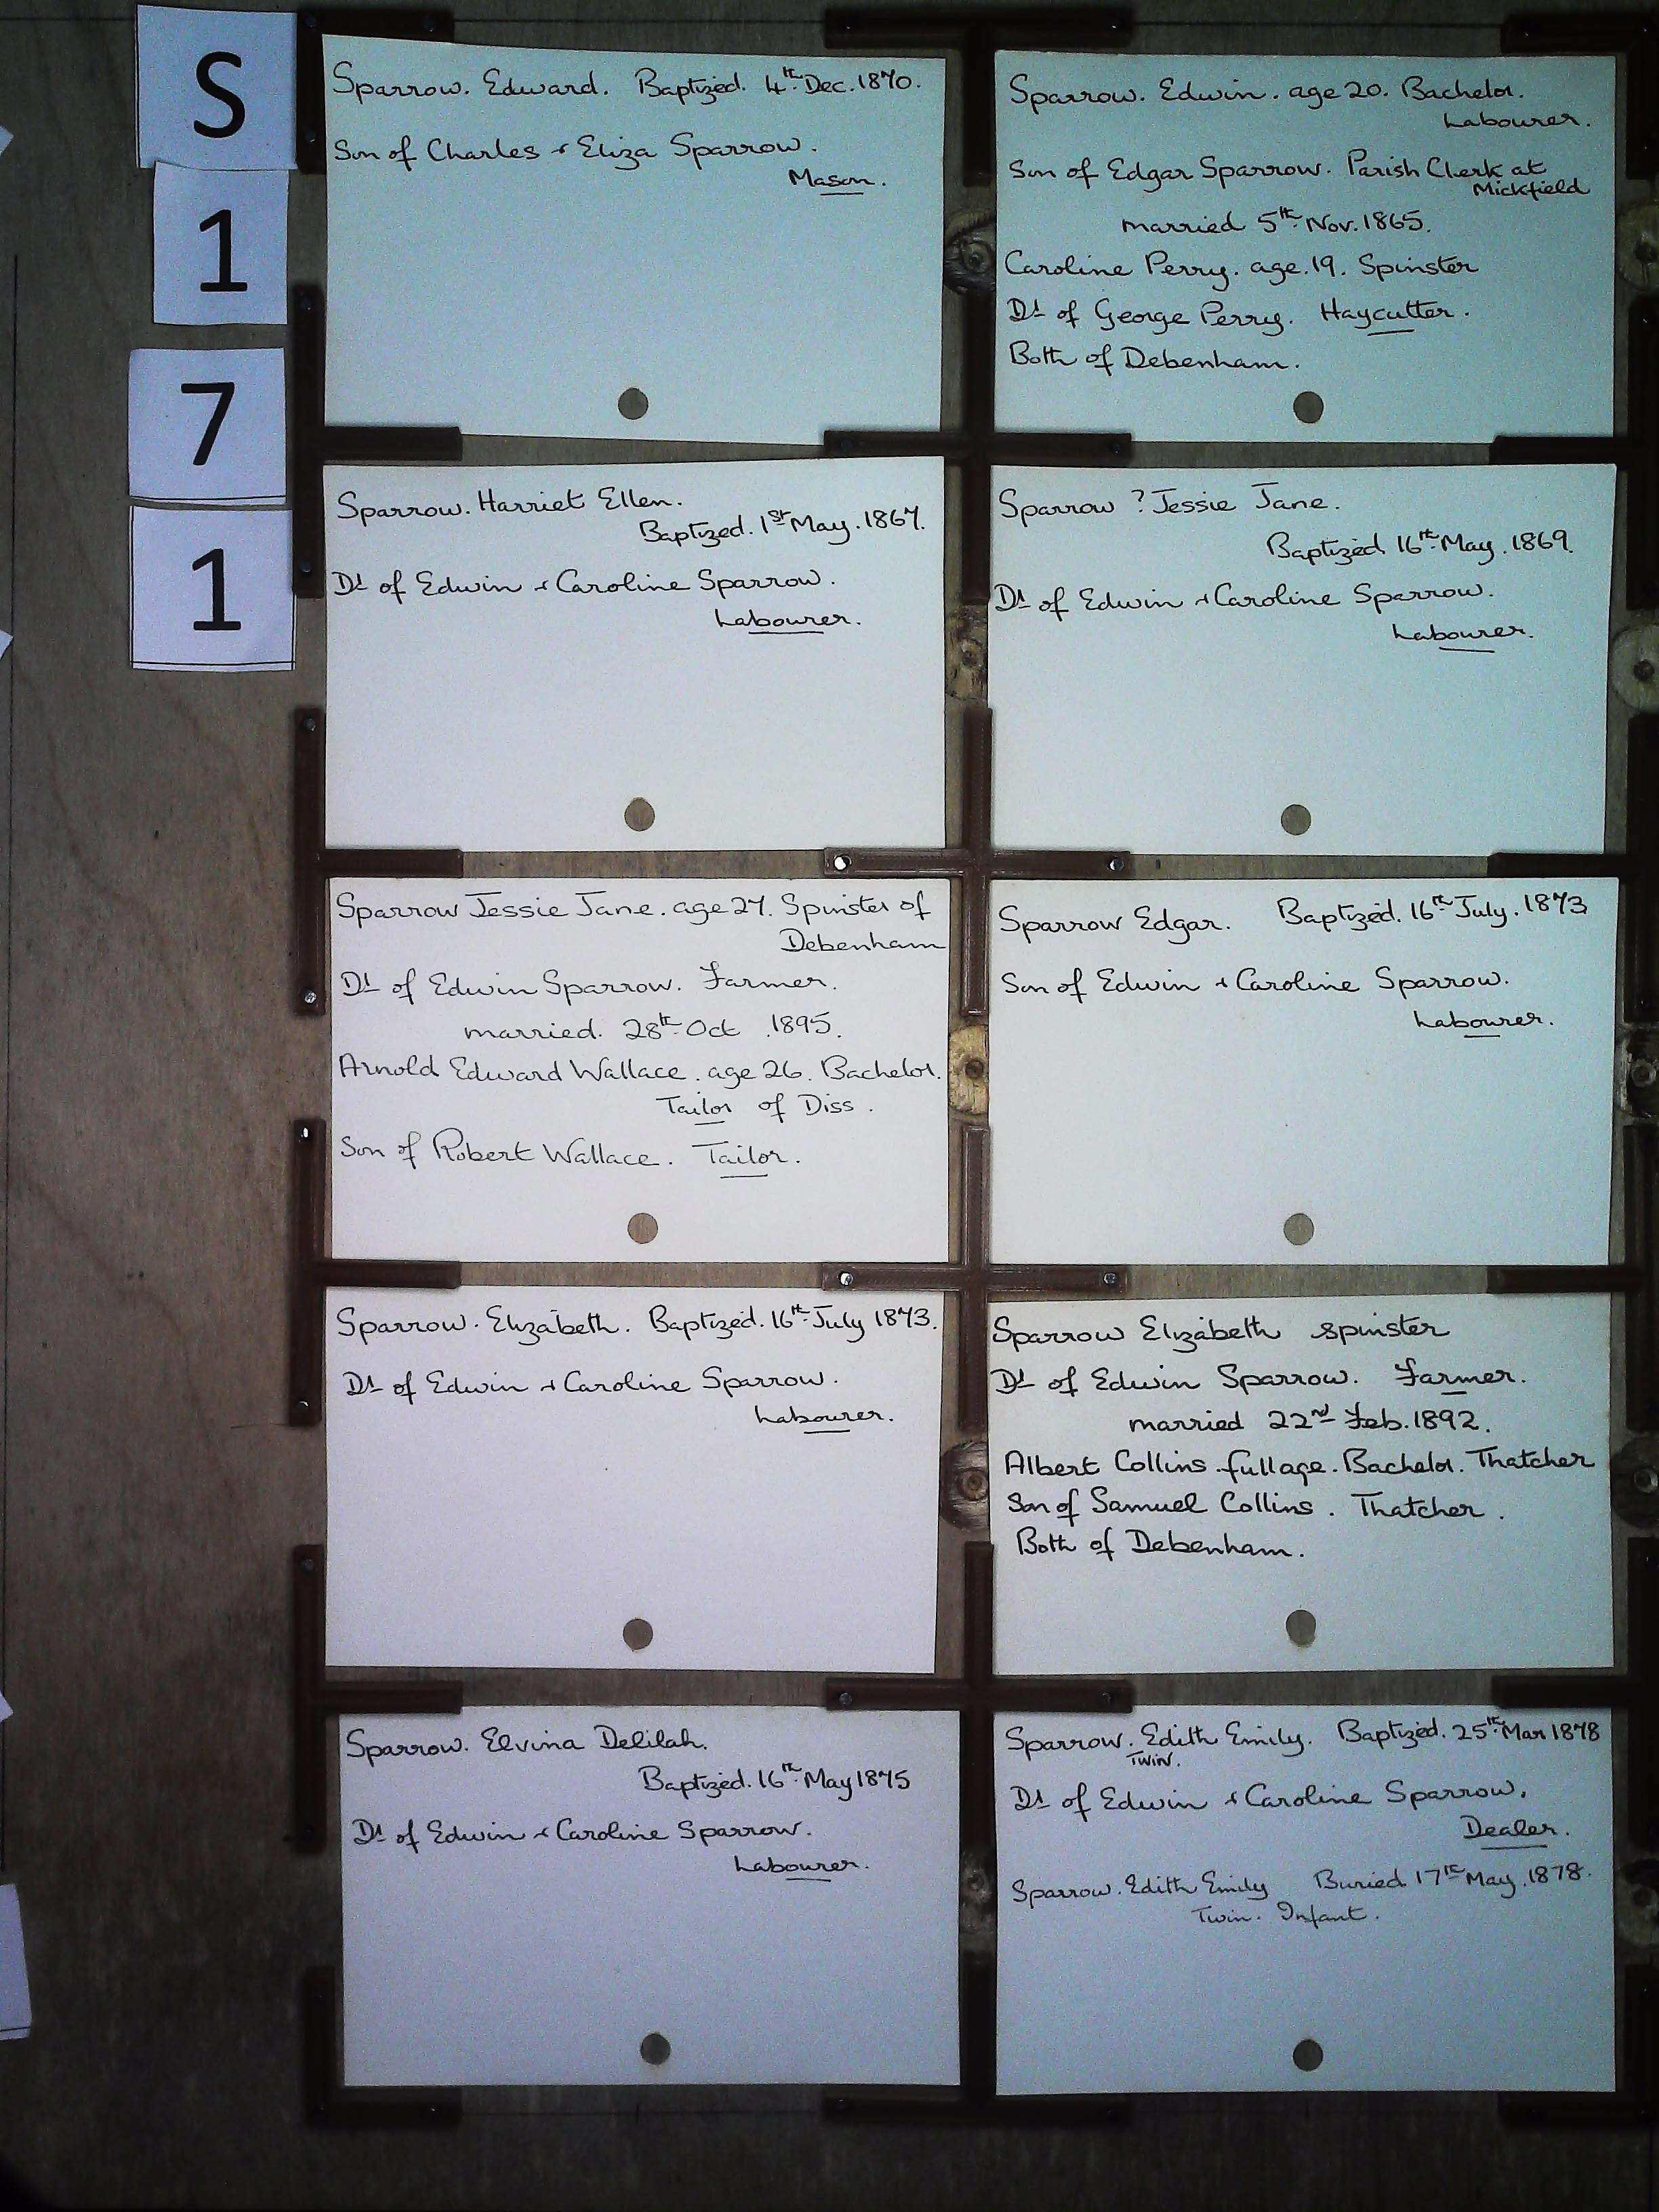 S
1
7
1
Sparrow. Edward. Baptized. 4th Dec. 1870.
Son of Charles + Eliza Sparrow.
Mason.
Sparrow. Edwin. age 20. Bachelor.
Labourer.
Son of Edgar Sparrow. Parish Clerk at
Mickfield
married 5th Nov. 1865.
Caroline Perry. age. 19. Spinster
Dr of George Perry. Haycutter.
Both of Debenham.
Sparrow. Harriet Ellen.
Baptized. 1st May. 1867.
Dr of Edwin + Caroline Sparrow.
Labourer.
Sparrow ? Jessie Jane.
Baptized 16th May. 1869.
Dr of Edwin + Caroline Sparrow.
Labourer.
Sparrow Jessie Jane. age 27. Spinster of
Debenham
Dr of Edwin Sparrow. Farmer.
married. 28th Oct. 1895.
Arnold Edward Wallace. age 26. Bachelor.
Tailor of Diss.
Son of Robert Wallace. Tailor.
Sparrow Edgar. Baptized. 16th July. 1873
Son of Edwin + Caroline Sparrow.
Labourer.
Sparrow. Elizabeth. Baptized. 16th July 1873.
Dr of Edwin + Caroline Sparrow.
Labourer.
Sparrow Elizabeth spinster
Dr of Edwin Sparrow. Farmer.
married 22nd Feb. 1892.
Albert Collins. full age. Bachelor. Thatcher
Son of Samuel Collins. Thatcher.
Both of Debenham.
Sparrow. Elvina Delilah.
Baptized. 16th May 1875
Dr of Edwin + Caroline Sparrow.
Labourer.
Sparrow. Edith Emily. Baptized. 25th Mar 1878
Twin.
Dr of Edwin + Caroline Sparrow.
Dealer.
Sparrow. Edith Emily Buried 17th May. 1878.
Twin. Infant.